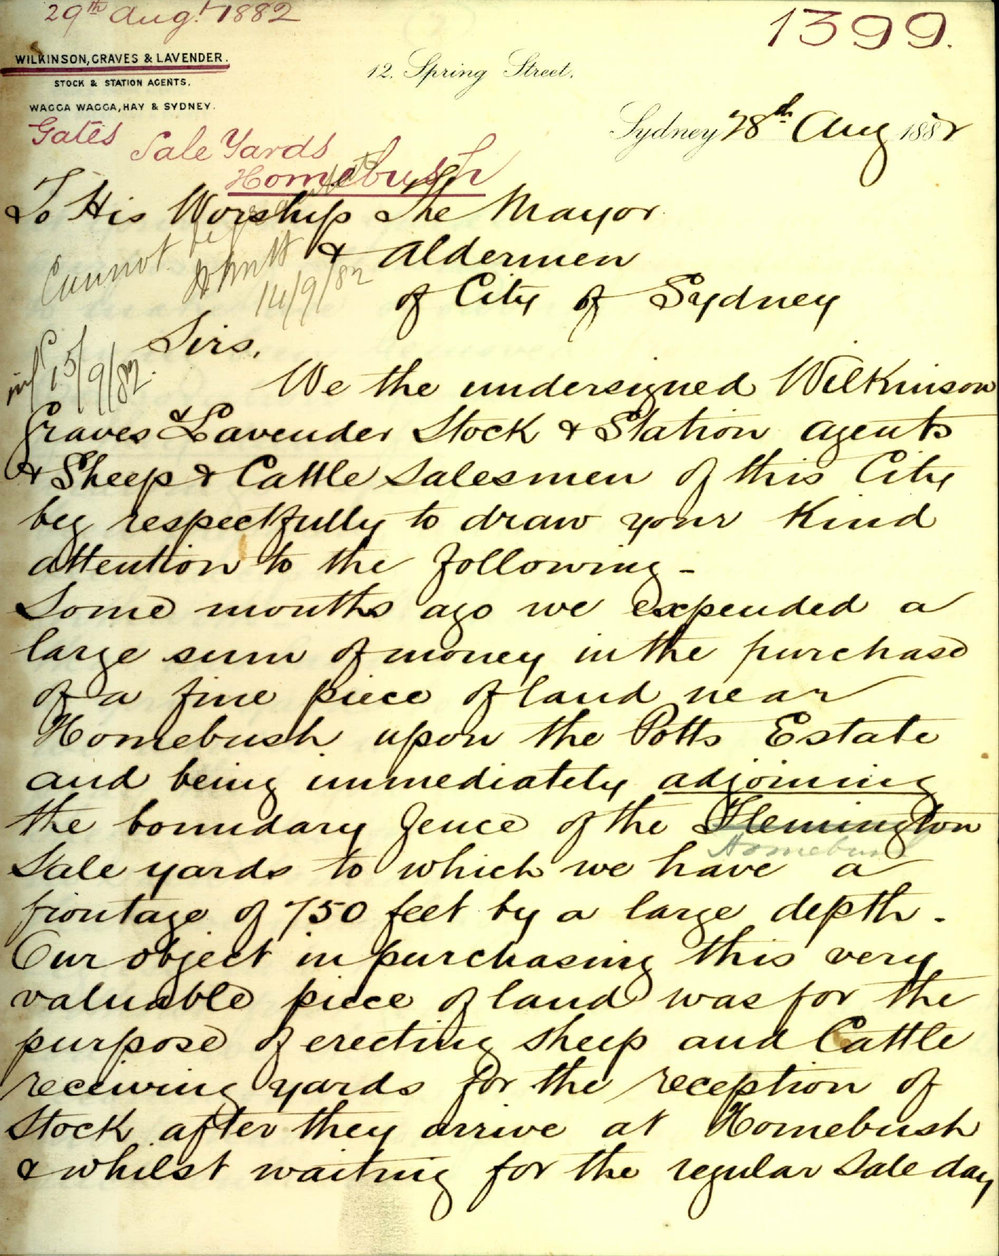 29th Augt. 1882
1399.
WILKINSON, GRAVES & LAVENDER.
STOCK & STATION AGENTS.
WAGGA WAGGA, HAY & SYDNEY.
12. Spring Street.
Sydney 28th Aug 1882
Gates Sale Yards
Homebush
To His Worship The Mayor
& Aldermen
of City of Sydney
Cannot be
14/9/82
Sirs,
inf 15/9/82.
We the undersigned Wilkinson
Graves & Lavender Stock & Station agents
& Sheep & Cattle salesmen of this City
beg respectfully to draw your kind
attention to the following -
Some months ago we expended a
large sum of money in the purchase
of a fine piece of land near
Homebush upon the Potts Estate
and being immediately adjoining
the boundary fence of the Flemington
Homebush
Sale yards to which we have a
frontage of 750 feet by a large depth -
Our object in purchasing this very
valuable piece of land was for the
purpose of erecting sheep and Cattle
receiving yards for the reception of
Stock after they arrive at Homebush
& whilst waiting for the regular Sale day